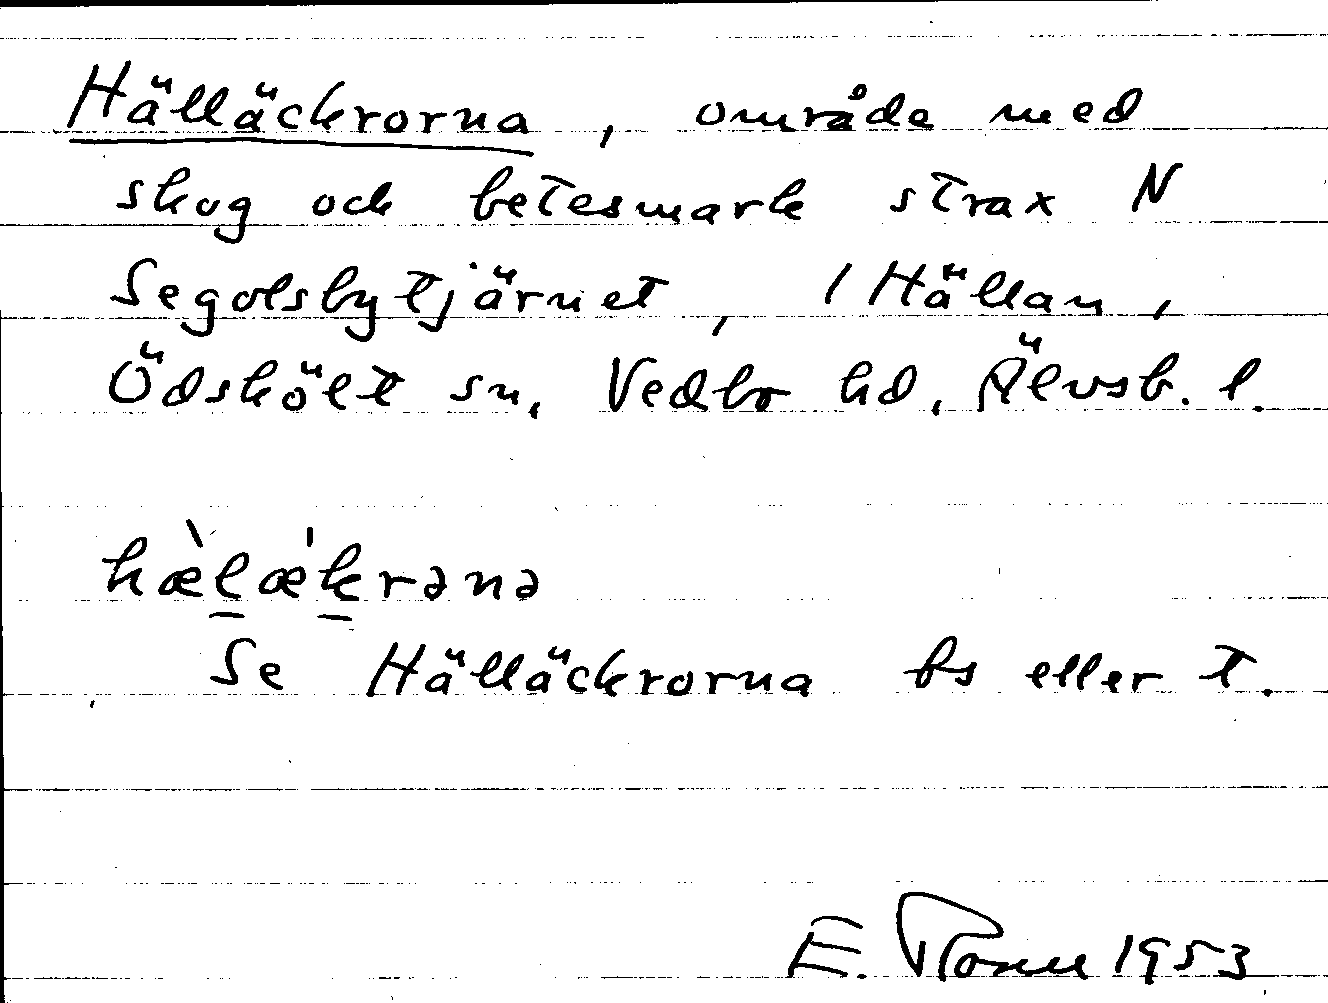 Hälläckrorna, område med
skog och betesmark strax N
Segolsbytjärnet, / Hällan,
Ödskölt sn, Vedbo hd, Älvsb. l.
hæ̀l̠æ̍k̠rənə
Se Hälläckrorna bs eller t.
E. 1953